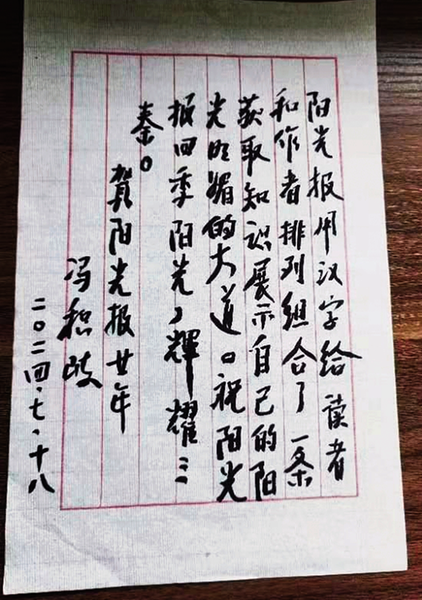 阳光报用汉字给读者
和作者排列组合了一条
获取知识展示自己的阳
光明媚的大道。祝阳光
报四季阳光，辉耀三
秦。
贺阳光报廿年
冯积岐
二〇二四·七·十八